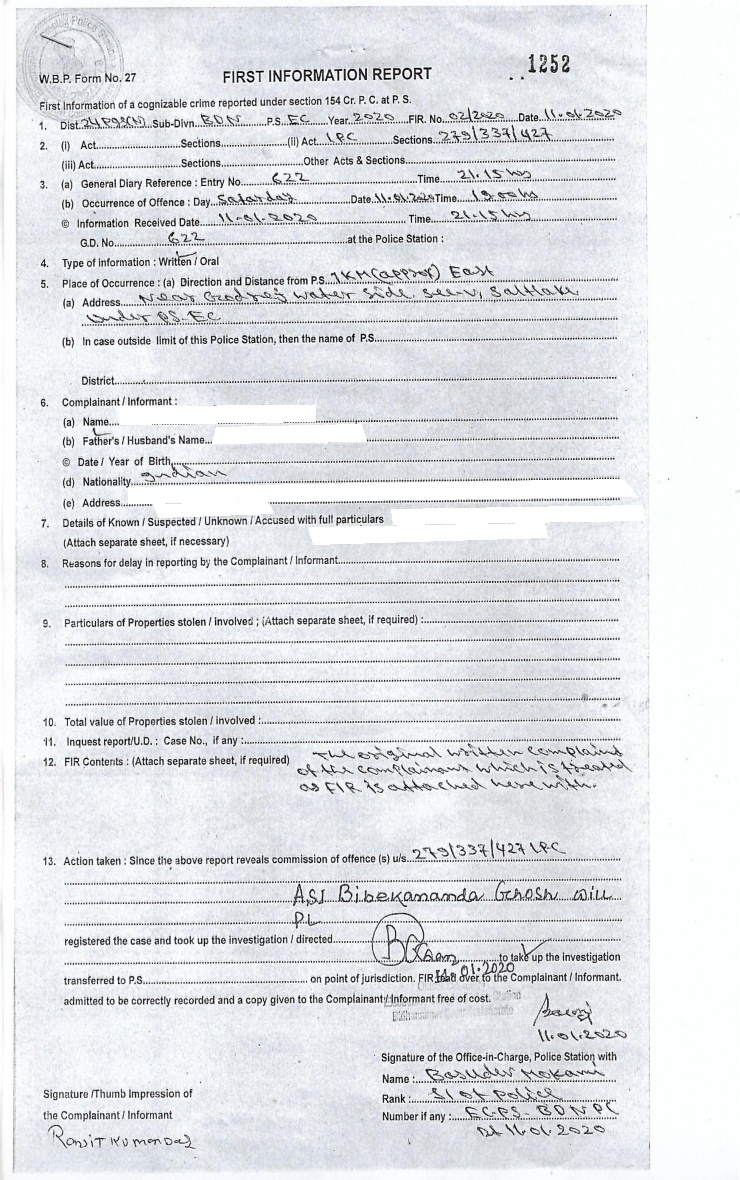 W.B.P. Form No. 27
FIRST INFORMATION REPORT
1252
First Information of a cognizable crime reported under section 154 Cr. P. C. at P. S.
1. Dist. 24 PGS(N) Sub-Divn. BDN P.S. EC Year. 2020 FIR. No. 02/2020 Date. 11.01.2020
2. (i) Act. Sections. (ii) Act. IPC Sections. 279/337/427
(iii) Act. Sections. Other Acts & Sections.
3. (a) General Diary Reference : Entry No. 622 Time. 21.15 hrs
(b) Occurrence of Offence : Day. Saturday Date. 11.01.2020 Time.
© Information Received Date. 11-01-2020 Time. 21.15 hrs
G.D. No. 622 at the Police Station :
4. Type of information : Written / Oral
5. Place of Occurrence : (a) Direction and Distance from P.S. 1 KM (approx) East
(a) Address. Near Godrej water side, sec-V, Saltlake
under PS-EC
(b) In case outside limit of this Police Station, then the name of P.S.
District.
6. Complainant / Informant :
(a) Name.
(b) Father's / Husband's Name.
© Date / Year of Birth
(d) Nationality. Indian
(e) Address.
7. Details of Known / Suspected / Unknown / Accused with full particulars
(Attach separate sheet, if necessary)
8. Reasons for delay in reporting by the Complainant / Informant.
9. Particulars of Properties stolen / involved ; (Attach separate sheet, if required) :
10. Total value of Properties stolen / involved :
11. Inquest report/U.D. : Case No., if any :
12. FIR Contents : (Attach separate sheet, if required) The original written complaint
of the complainant which is treated
as FIR is attached here with.
13. Action taken : Since the above report reveals commission of offence (s) u/s. 279/337/427 IPC
ASI Bibekananda Ghosh will
registered the case and took up the investigation / directed
to take up the investigation
transferred to P.S. on point of jurisdiction. FIR over to the Complainant / Informant.
admitted to be correctly recorded and a copy given to the Complainant / Informant free of cost.
11.01.2020
Signature of the Office-in-Charge, Police Station with
Name : Basudev
Rank : SI of Police
Number if any : ECPS-BDNPC
Dt 11.01.2020
Signature /Thumb Impression of
the Complainant / Informant